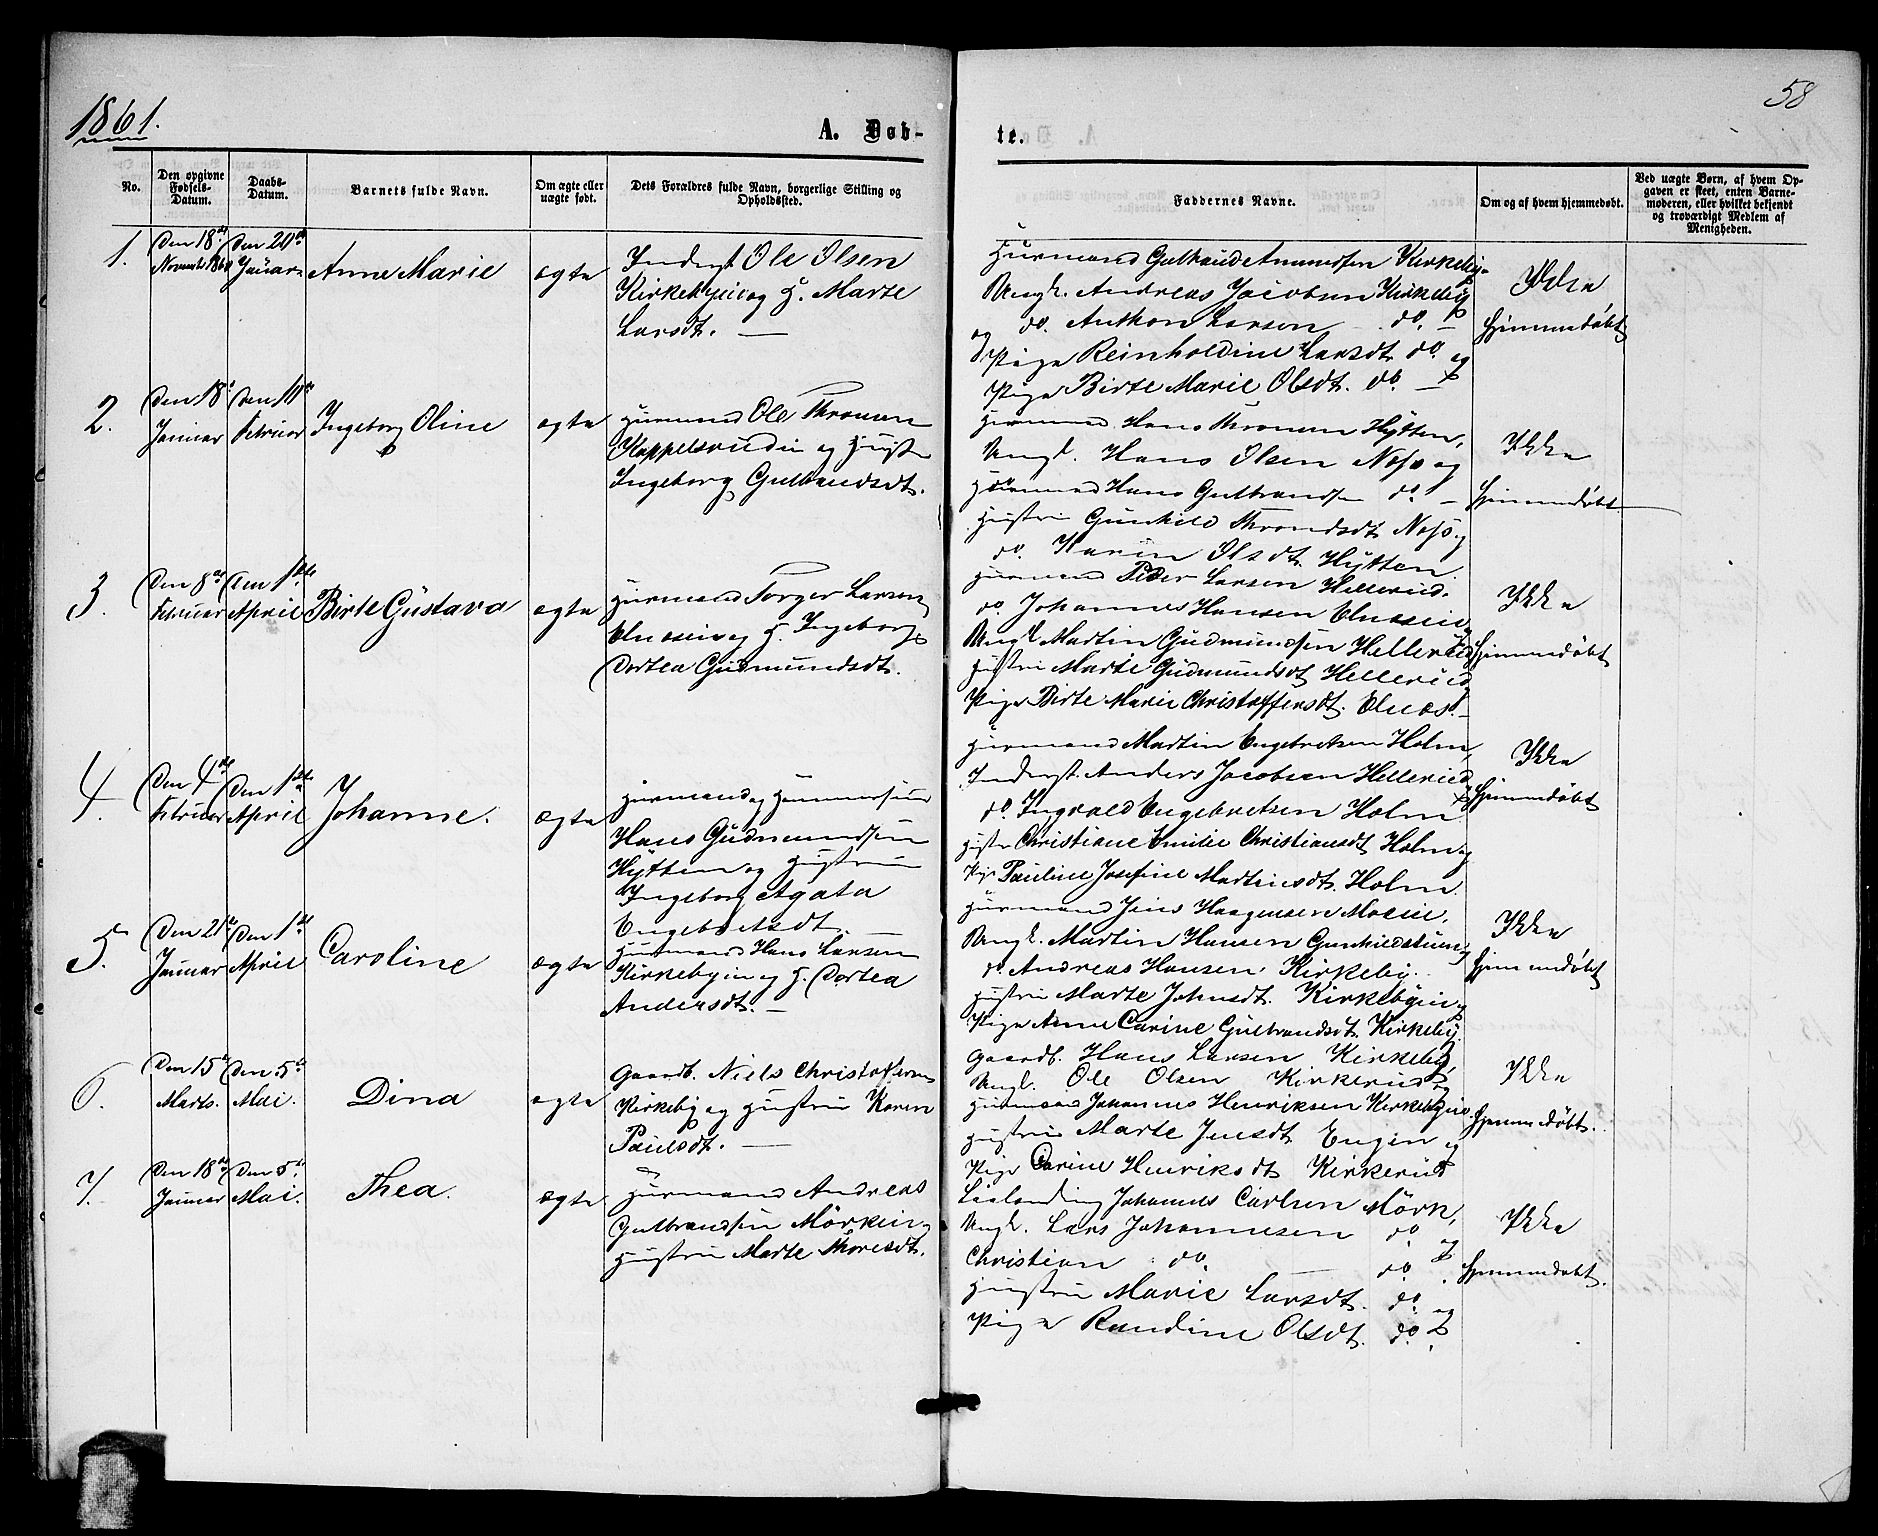 1861.
58
A. Døb-
te.
No.
Den opgivne
Fødsels-
Datum.
Daabs-
Datum.
Barnets fulde Navn.
Om ægte eller
uægte født.
Dets Forældres fulde Navn, borgerlige Stilling og
Opholdssted.
Faddernes Navne.
Om og af hvem hjemmedøbt.
Ved uægte Børn, af hvem Op-
gaven er skeet, enten Barne-
moderen, eller hvilket bekjendt
og troværdigt Medlem af
Menigheden.
1.
Den 18de
Novemb 1860
Den 20de
Januar
Anne Marie
ægte
Inderst Ole Olsen
Kirkebyeie og H. Marte
Larsdt.
Huusmand Gulbrand Amundsen Kirkeby-
Ungk. Andreas Jacobsen Kirkeby
og do. Anthon Larsen do.
Pige Reinholdine Larsdt do og
Pige Birte Marie Olsdt. do.
Ikke
hjemmedøbt
2.
Den 18de
Januar
Den 10de
Februar
Ingeborg Oline
ægte
Huusmand Ole Thronsen
og Hustru
Ingeborg Gulbrandsdt.
Huusmand Hans Thronsen Hytten,
Ungk. Hans Olsen Næs og
Huusmand Hans Gulbrandsen do.
Hustru Gunhild Throndsdt Næs og
do. Karen Olsdt. Hytten.
Ikke
hjemmedøbt
3.
Den 8de
Februar
Den 1ste
April
Birte Gustava
ægte
Huusmand Torger Larsen
Elnæseie og H. Ingeborg
Dortea Gudmundsdt.
Huusmand Peder Larsen Hellerud.
do. Johannes Hansen Elnæseie
Ungk Martin Gudmundsen Hellerud
Hustru Marte Gudmundsdt Hellerud
Pige Birte Marie Christoffersdt. Elnæs.
Ikke
hjemmedøbt
4.
Den 4de
Februar
Den 1ste
April
Johanne.
ægte
Huusmand og
Hans Gudmundsen
Hytten og Hustru
Ingeborg Agata
Engebretsdt.
Huusmand Martin Engebretsen Holm,
Inderst. Anders Jacobsen Hellerud
do. Ingvald Engebretsen Holm
Hustru Christiane Emilie Christiansdt Holm og
Pige Pauline Josefine Martinsdt. Holm.
Ikke
hjemmedøbt
5.
Den 21de
Januar
Den 1ste
April
Caroline
ægte
Huusmand Hans Larsen
Kirkebyeie og H. Dortea
Andersdt.
Huusmand Jens Haagensen Moeeie.
Ungk. Martin Hansen
do Andreas Hansen Kirkeby.
Hustru Marte Johnsdt. Kirkebyeie og
Pige Anne Carine Gulbrandsdt. Kirkeby.
Ikke
hjemmedøbt
6.
Den 15de
Marts.
Den 5te
Mai.
Dina
ægte
Gaardb. Niels Christoffersen
Kirkeby og Hustru Karen
Paulsdt.
Gaardb. Hans Larsen Kirkeby
Ungk. Ole Olsen Kirkerud og
Huusmand Johannes Henriksen Kirkebyeie.
Hustru Marte Jensdt Engen og
Pige Carine Henriksdt Kirkerud
Ikke
hjemmedøbt.
7.
Den 18de
Januar
Den 5te
Mai.
Thea.
ægte
Huusmand Andreas
Gulbrandsen Mørkeie og
Hustru Marte Thoresdt.
Johannes Carlsen Mörk,
Ungk. Lars Johannesen do og
Christian do. do.
Hustru Marie Larsdt. do. og
Pige Randine Olsdt. do.
Ikke
hjemmedøbt.